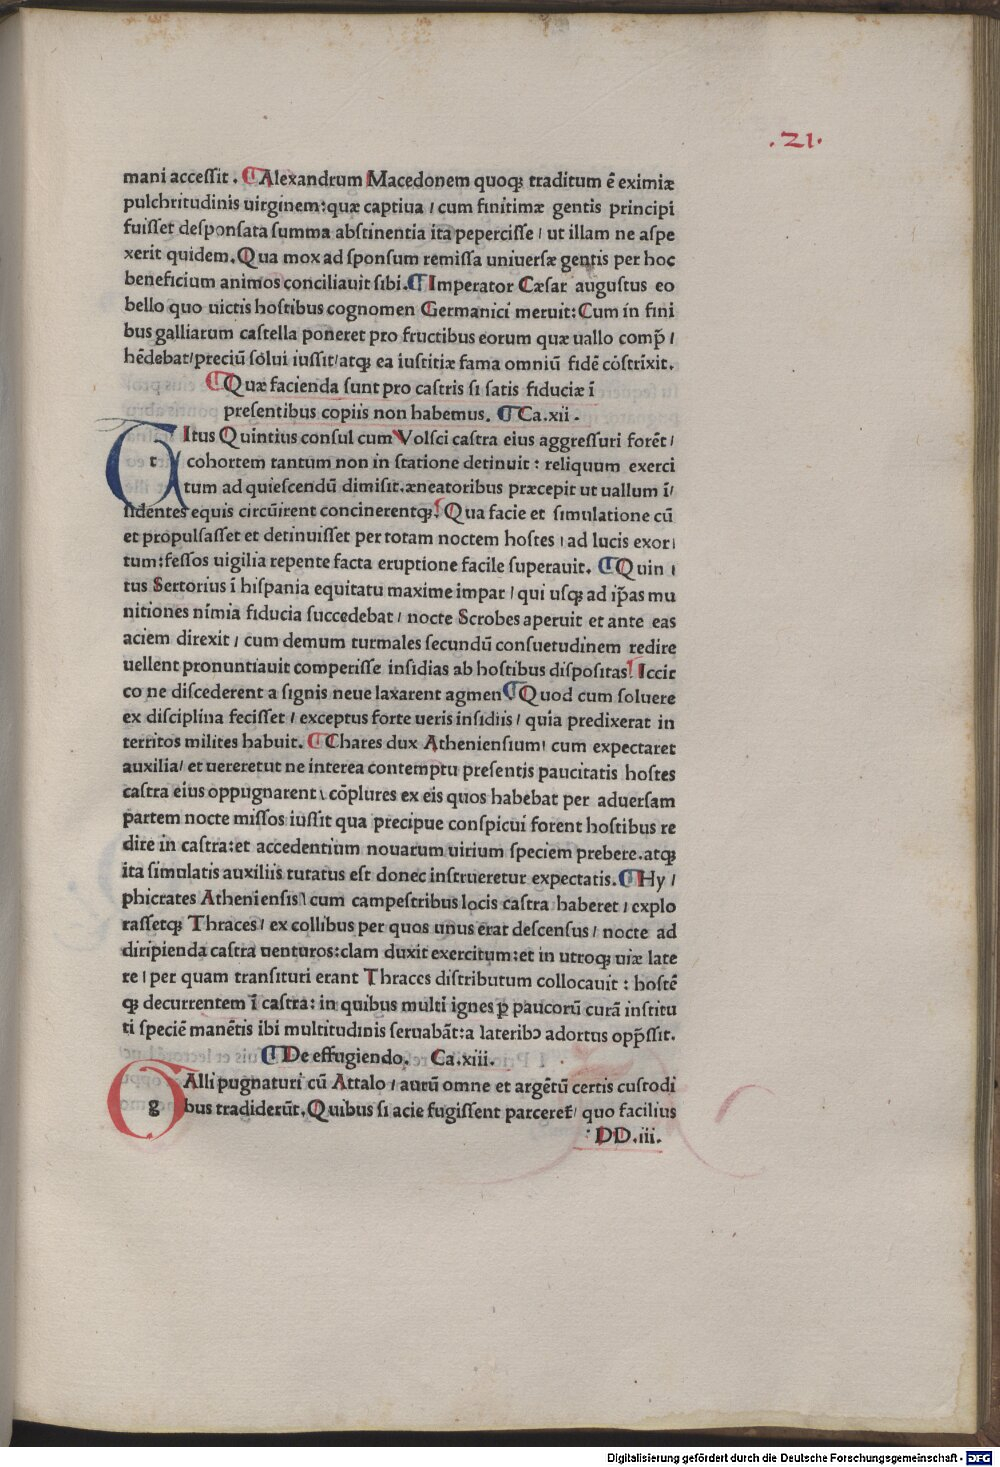 .21.
mani acceſſit. ¶ Alexandrum Macedonem quoqꝫ traditum ē eximiæ
pulchritudinis uirginem:quæ captiua / cum finitimæ gentis principi
fuiſſet deſponſata ſumma abſtinentia ita peperciſſe / ut illam ne aſpe
xerit quidem. Qua mox ad ſponſum remiſſa uniuerſæ gentis per hoc
beneficium animos conciliauit ſibi. ¶ Imperator Cæſar auguſtus eo
bello quo uictis hoſtibus cognomen Germanici meruit: Cum in fini
bus galliarum caſtella poneret pro fructibus eorum quæ uallo comp̄ /
hēdebat/preciū ſolui iuſſit/atqꝫ ea iuſtitiæ fama omniū fidē cōſtrixit.
¶ Quæ facienda ſunt pro caſtris ſi ſatis fiduciæ ī
preſentibus copiis non habemus. ¶ Ca.xii.
t
Itus Quintius conſul cum Volſci caſtra eius aggreſſuri forēt /
cohortem tantum non in ſtatione detinuit : reliquum exerci
tum ad quieſcendū dimiſit.æneatoribus præcepit ut uallum ī/
ſidentes equis circūirent concinerentqꝫ. Qua facie et ſimulatione cū
et propulſaſſet et detinuiſſet per totam noctem hoſtes / ad lucis exor/
tum:feſſos uigilia repente facta eruptione facile ſuperauit. ¶ Quin /
tus Sertorius ī hiſpania equitatu maxime impar / qui uſqꝫ ad ip̄as mu
nitiones nimia fiducia ſuccedebat / nocte Scrobes aperuit et ante eas
aciem direxit / cum demum turmales ſecundū conſuetudinem redire
uellent pronuntiauit comperiſſe inſidias ab hoſtibus diſpoſitas! Iccir
co ne diſcederent a ſignis neue laxarent agmen ¶ Quod cum ſoluere
ex diſciplina feciſſet / exceptus forte ueris inſidiis / quia predixerat in
territos milites habuit. ¶ Chares dux Athenienſium/ cum expectaret
auxilia/ et uereretut ne interea contemptu preſentis paucitatis hoſtes
caſtra eius oppugnarent \ cōplures ex eis quos habebat per aduerſam
partem nocte miſſos iuſſit qua precipue conſpicui forent hoſtibus re
dire in caſtra:et accedentium nouarum uirium ſpeciem prebere.atqꝫ
ita ſimulatis auxiliis tutatus eſt donec inſtrueretur expectatis. ¶ Hy /
phicrates Athenienſis\ cum campeſtribus locis caſtra haberet / explo
raſſetqꝫ Thraces / ex collibus per quos unus erat deſcenſus / nocte ad
diripienda caſtra uenturos:clam duxit exercitum:et in utroqꝫ uiæ late
re / per quam tranſituri erant Thraces diſtributum collocauit : hoſtē
qꝫ decurrentem ī caſtra: in quibus multi ignes ꝑ paucorū curā inſtitu
ti ſpeciē manētis ibi multitudinis ſeruabāt:a lateribꝰ adortus opp̄ſſit.
¶ De effugiendo. Ca.xiii.
g
Alli pugnaturi cū Attalo / aurū omne et argētū certis cuſtodi
bus tradiderūt. Quibus ſi acie fugiſſent parceret̄ / quo facilius
DD.iii.
Digitalisierung gefördert durch die Deutsche Forschungsgemeinschaft - DFG